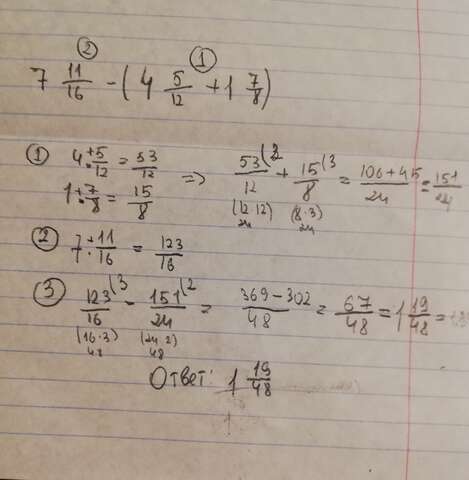 ② ①
7 11/16 - (4 5/12 + 1 7/8)
① 4 + 5/12 = 53/12 => 53/12 (2 + 15/8 (3 = 106+45/24 = 151/24
1 + 7/8 = 15/8 (12·12) 24 (8·3) 24
② 7 + 11/16 = 123/16
③ 123/16 (3 - 151/24 (2 = 369-302/48 = 67/48 = 1 19/48 =
(16·3) 48 (24·2) 48
Ответ: 1 19/48